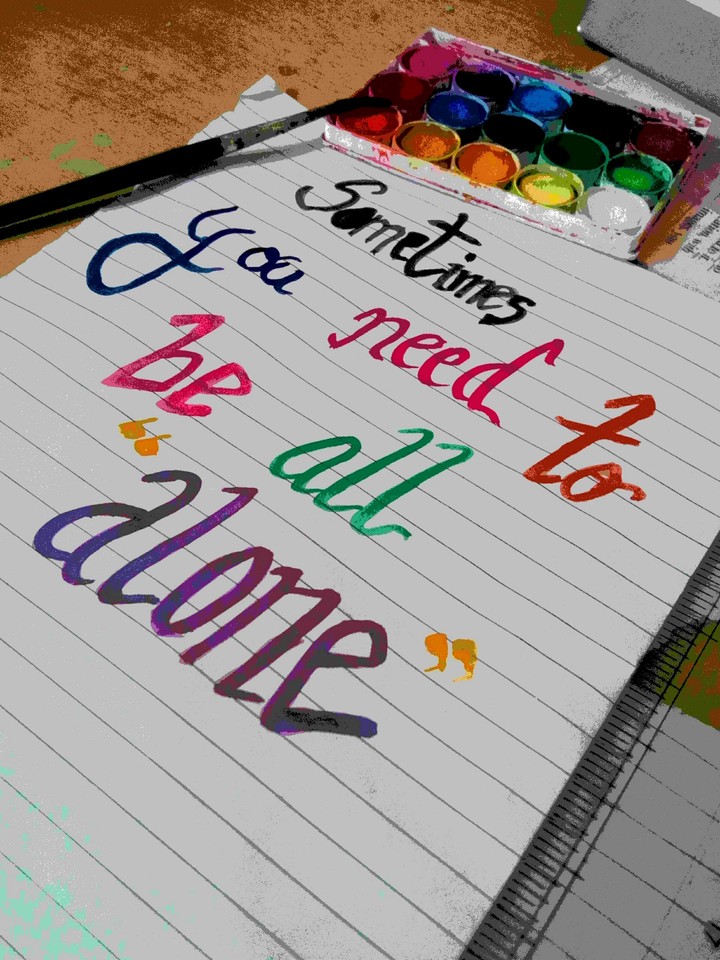 Sometimes
you need to
be all
“alone”